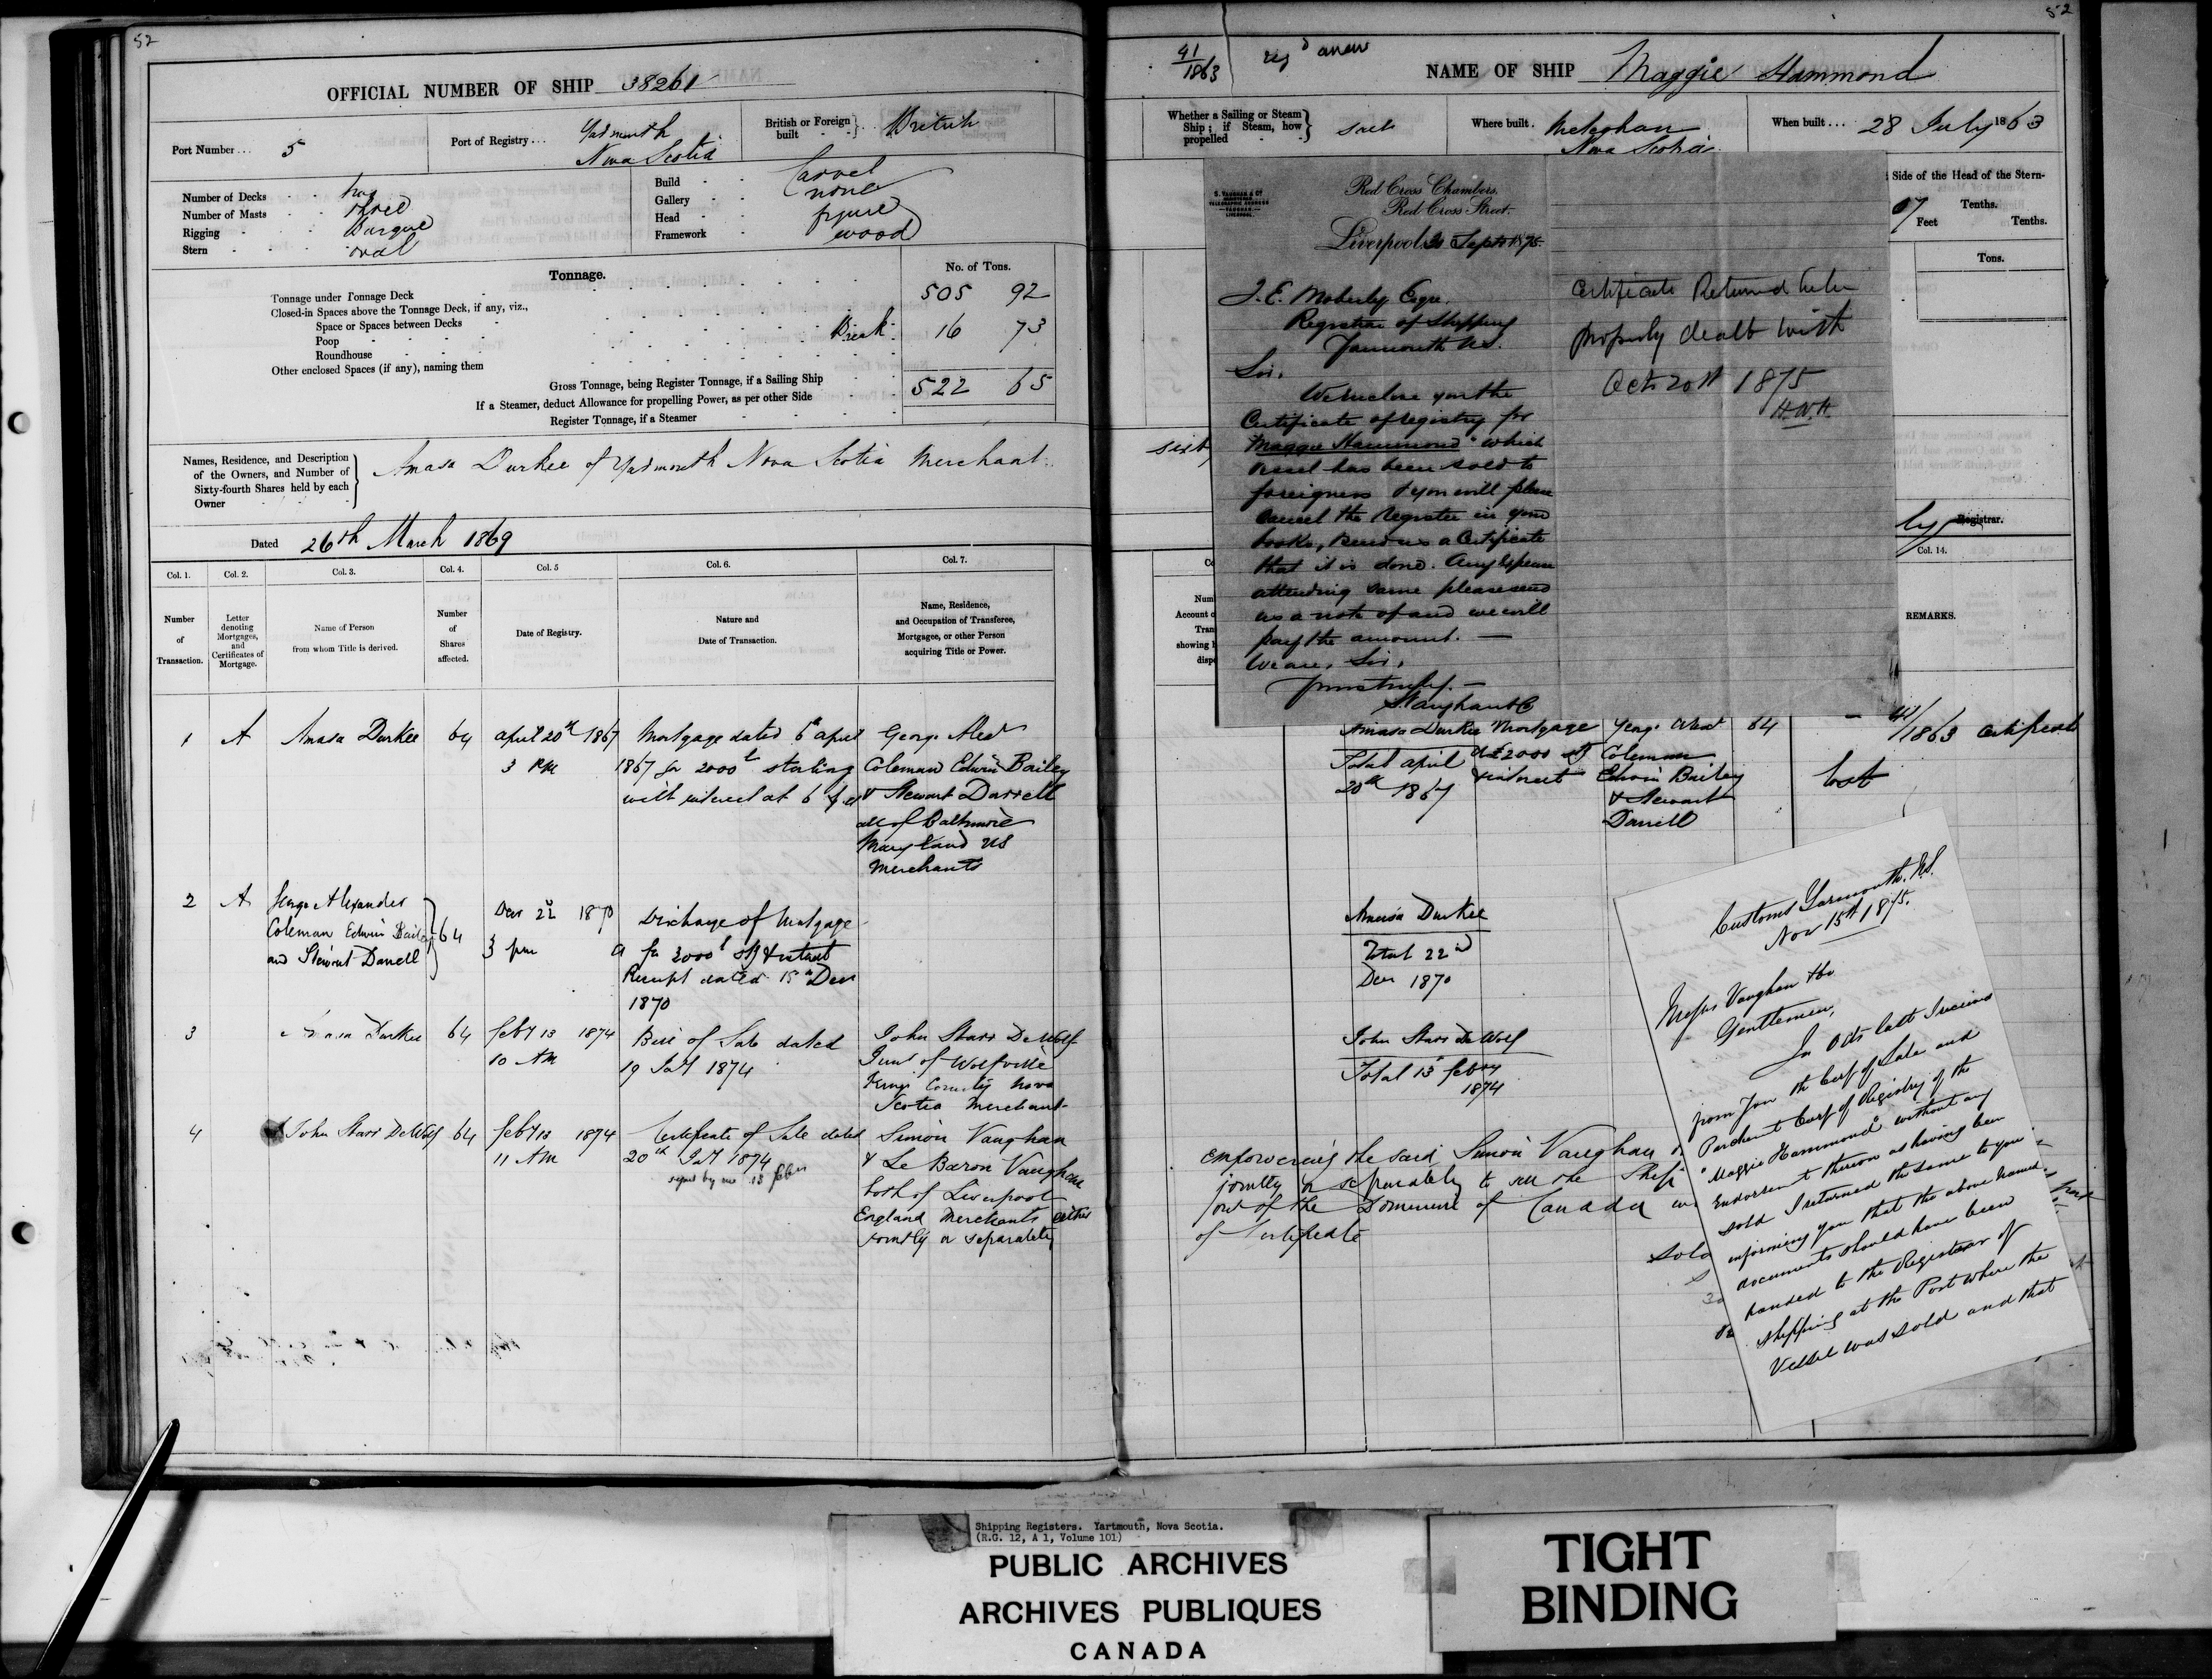 52
OFFICIAL NUMBER OF SHIP 38261
Port Number... 5
Port of Registry... Yarmouth
Nova Scotia
British or Foreign built British
Number of Decks two
Number of Masts three
Rigging Barque
Stern oval
Build Carvel
Gallery none
Head figure
Framework wood
Tonnage.
No. of Tons.
Tonnage under Tonnage Deck 505 92
Closed-in Spaces above the Tonnage Deck, if any, viz.,
Space or Spaces between Decks
Poop Break 16 73
Roundhouse
Other enclosed Spaces (if any), naming them
Gross Tonnage, being Register Tonnage, if a Sailing Ship 522 65
If a Steamer, deduct Allowance for propelling Power, as per other Side
Register Tonnage, if a Steamer
Names, Residence, and Description
of the Owners, and Number of
Sixty-fourth Shares held by each
Owner
Amasa Durkee of Yarmouth Nova Scotia Merchant
Dated 26th March 1869
Col. 1. Col. 2. Col. 3. Col. 4. Col. 5 Col. 6. Col. 7.
Number
of
Transaction.
Letter
denoting
Mortgages,
and
Certificates of
Mortgage.
Name of Person
from whom Title is derived.
Number
of
Shares
affected.
Date of Registry.
Nature and
Date of Transaction.
Name, Residence,
and Occupation of Transferee,
Mortgagee, or other Person
acquiring Title or Power.
1 A Amasa Durkee 64 april 20th 1867
3 PM
Mortgage dated 6th april
1867 for 2000l sterling
with interest at 6
George Alexr
Coleman Edwin Bailey
& Stewart Darrell
all of Baltimore
Maryland US
Merchants
2 A George Alexander
Coleman Edwin Bailey
and Stewart Darrell
64
Decr 22 1870
3 pm
Discharge of Mortgage
A for 2000l stg & interest
Receipt dated 15th Decr
1870
3 Durkee 64 feby 13 1874
10 AM
Bill of Sale dated
19 Jay 1874
John Starr DeWolf
of Wolfville
Kings County Nova
Scotia Merchant
4 John Starr DeWolf 64 feby 13 1874
11 AM
Certificate of Sale dated
20th Jay 1874
by me 13 feby
Simon Vaughan
& Le Baron Vaughan
both of Liverpool
England Merchants either
jointly or separately
52
41/1863 regd anew
NAME OF SHIP Maggie Hammond
Whether a Sailing or Steam
Ship; if Steam, how
propelled
Sail
Where built. Meteghan
Nova Scotia
When built... 28 July 1863
Side of the Head of the Stern-
Tenths.
Feet Tenths.
Tons.
Registrar.
Col. 14.
REMARKS.
S. VAUGHAN & Co
TELEGRAPHIC ADDRESS
VAUGHAN
LIVERPOOL
Red Cross Chambers,
Red Cross Street.
Liverpool 30 Sept 1875
J. E. Moberly Esqre.
Registrar of Shipping
Yarmouth N.S.
Sir,
We enclose you the
Certificate of registry for
"Maggie Hammond" which
vessel has been sold to
foreigners & you will please
cancel the register in your
books, & send us a Certificate
that it is done. Any expense
attending same please send
us a note of and we will
pay the amount. —
We are, Sir,
Yours truly. —
S. Vaughan & Co
Certificate Returned to be
properly dealt with
Oct 20th 1875
H.W.H.
Amasa Durkee
Total april
20th 1867
Mortgage
A £2000 stg
& interest
George Alexr
Coleman
Edwin Bailey
& Stewart
Darrell
64
41/1863 certificate
lost
Amasa Durkee
Total 22nd
Decr 1870
John Starr DeWolf
Total 13 feby
1874
empowering the said Simon Vaughan
jointly or separately to sell the Ship
out of the Dominion of Canada
of Certificate
sold
Customs Yarmouth. N.S.
Nov 15th 1875.
Messrs Vaughan & Co
Gentlemen,
In Octr last I received
from you the Cert of Sale and
Parchment Cert of Registry of the
"Maggie Hammond" without any
Endorsement thereon as having been
sold I returned the same to you
informing you that the above named
documents should have been
handed to the Registrar of
shipping at the Port where the
Vessel was sold and that
Shipping Registers. Yartmouth, Nova Scotia.
(R.G. 12, A 1, Volume 101)
PUBLIC ARCHIVES
ARCHIVES PUBLIQUES
CANADA
TIGHT
BINDING